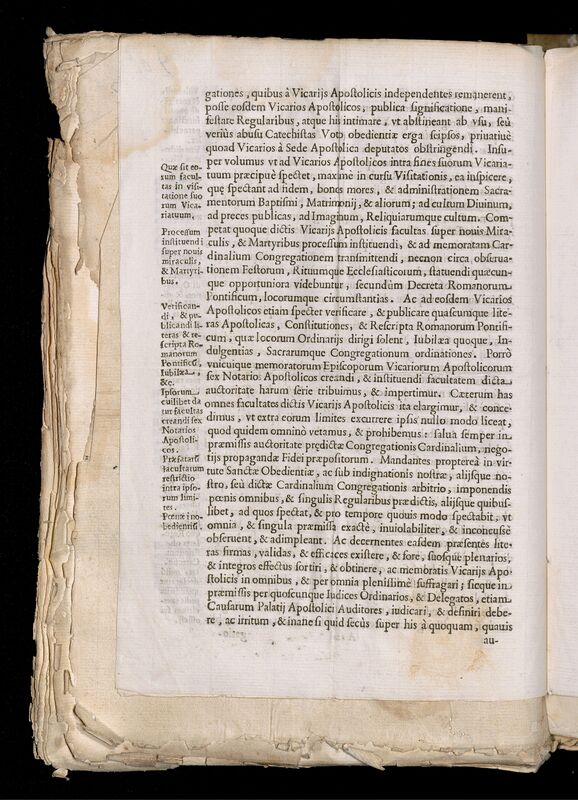 gationes, quibus à Vicarijs Apostolicis independentes remanerent,
posse eosdem Vicarios Apostolicos, publica significatione, mani-
festare Regularibus, atque his intimare, vt abstineant ab vsu, seù
veriùs abusu Catechistas Voto obedientiæ erga seipsos, priuatiuè
quoad Vicarios à Sede Apostolica deputatos obstringendi. Insu-
per volumus vt ad Vicarios Apostolicos intra fines suorum Vicaria-
tuum præcipuè spectet, maximè in cursu Visitationis, ea inspicere,
que spectant ad fidem, bonos mores, & administrationem Sacra-
mentorum Baptismi, Matrimonij, & aliorum; ad cultum Diuinum,
ad preces publicas, ad Imaginum, Reliquiarumque cultum. Com-
petat quoque dictis Vicarijs Apostolicis facultas super nouis Mira-
culis, & Martyribus processum instituendi, & ad memoratam Car-
dinalium Congregationem transmittendi, necnon circa obserua-
tionem Festorum, Rituumque Ecclesiasticorum, statuendi quæcun-
que opportuniora videbuntur, secundùm Decreta Romanorum
Pontificum, locorumque circumstantias. Ac ad eosdem Vicarios
Apostolicos etiam spectet verificare, & publicare quascumque lite-
ras Apostolicas, Constitutiones, & Rescripta Romanorum Pontifi-
cum, quæ locorum Ordinarijs dirigi solent, Iubilæa quoque, In-
dulgentias, Sacrarumque Congregationum ordinationes. Porrò
vnicuique memoratorum Episcoporum Vicariorum Apostolicorum
sex Notarios Apostolicos creandi, & instituendi facultatem dicta
auctoritate harum serie tribuimus, & impertimur. Cæterum has
omnes facultates dictis Vicarijs Apostolicis ita elargimur, & conce-
dimus, vt extra eorum limites excurrere ipsis nullo modo liceat,
quod quidem omninò vetamus, & prohibemus: salua semper in
præmissis auctoritate prędictæ Congregationis Cardinalium, nego-
tijs propagandæ Fidei præpositorum. Mandantes proptereà in vir-
tute Sanctæ Obedientiæ, ac sub indignationis nostræ, alijsque no-
stro, seù dictæ Cardinalium Congregationis arbitrio, imponendis
pœnis omnibus, & singulis Regularibus prædictis, alijsque quibus-
libet, ad quos spectat, & pro tempore quouis modo spectabit, vt
omnia, & singula præmissa exactè, inuiolabiliter, & inconcussè
obseruent, & adimpleant. Ac decernentes easdem præsentes lite-
ras firmas, validas, & efficaces existere, & fore, suosque plenarios,
& integros effectus sortiri, & obtinere, ac memoratis Vicarijs Apo-
stolicis in omnibus, & per omnia plenissimè suffragari; sicque in
præmissis per quoscunque Iudices Ordinarios, & Delegatos, etiam
Causarum Palatij Apostolici Auditores, iudicari, & definiri debe-
re, ac irritum, & inane si quid secùs super his à quoquam, quauis
au-
Quæ sit eo-
rum facul-
tas in visi-
tatione suo
rum Vica-
riatuum.
Processum
instituendi
super nouis
miraculis,
& Martyri-
bus.
Verifican-
di, & pu-
blicandi li-
teras & re-
scripta Ro-
manorum
Pontificũ,
Iubilæa,
&c.
Ipsorum
cuilibet da
tur facultas
creandi sex
Notarios
Apostoli-
cos.
Præfatarũ
facultatum
restrictio
intra ipso-
rum limi-
tes.
Pœnæ ino-
bedientiũ.